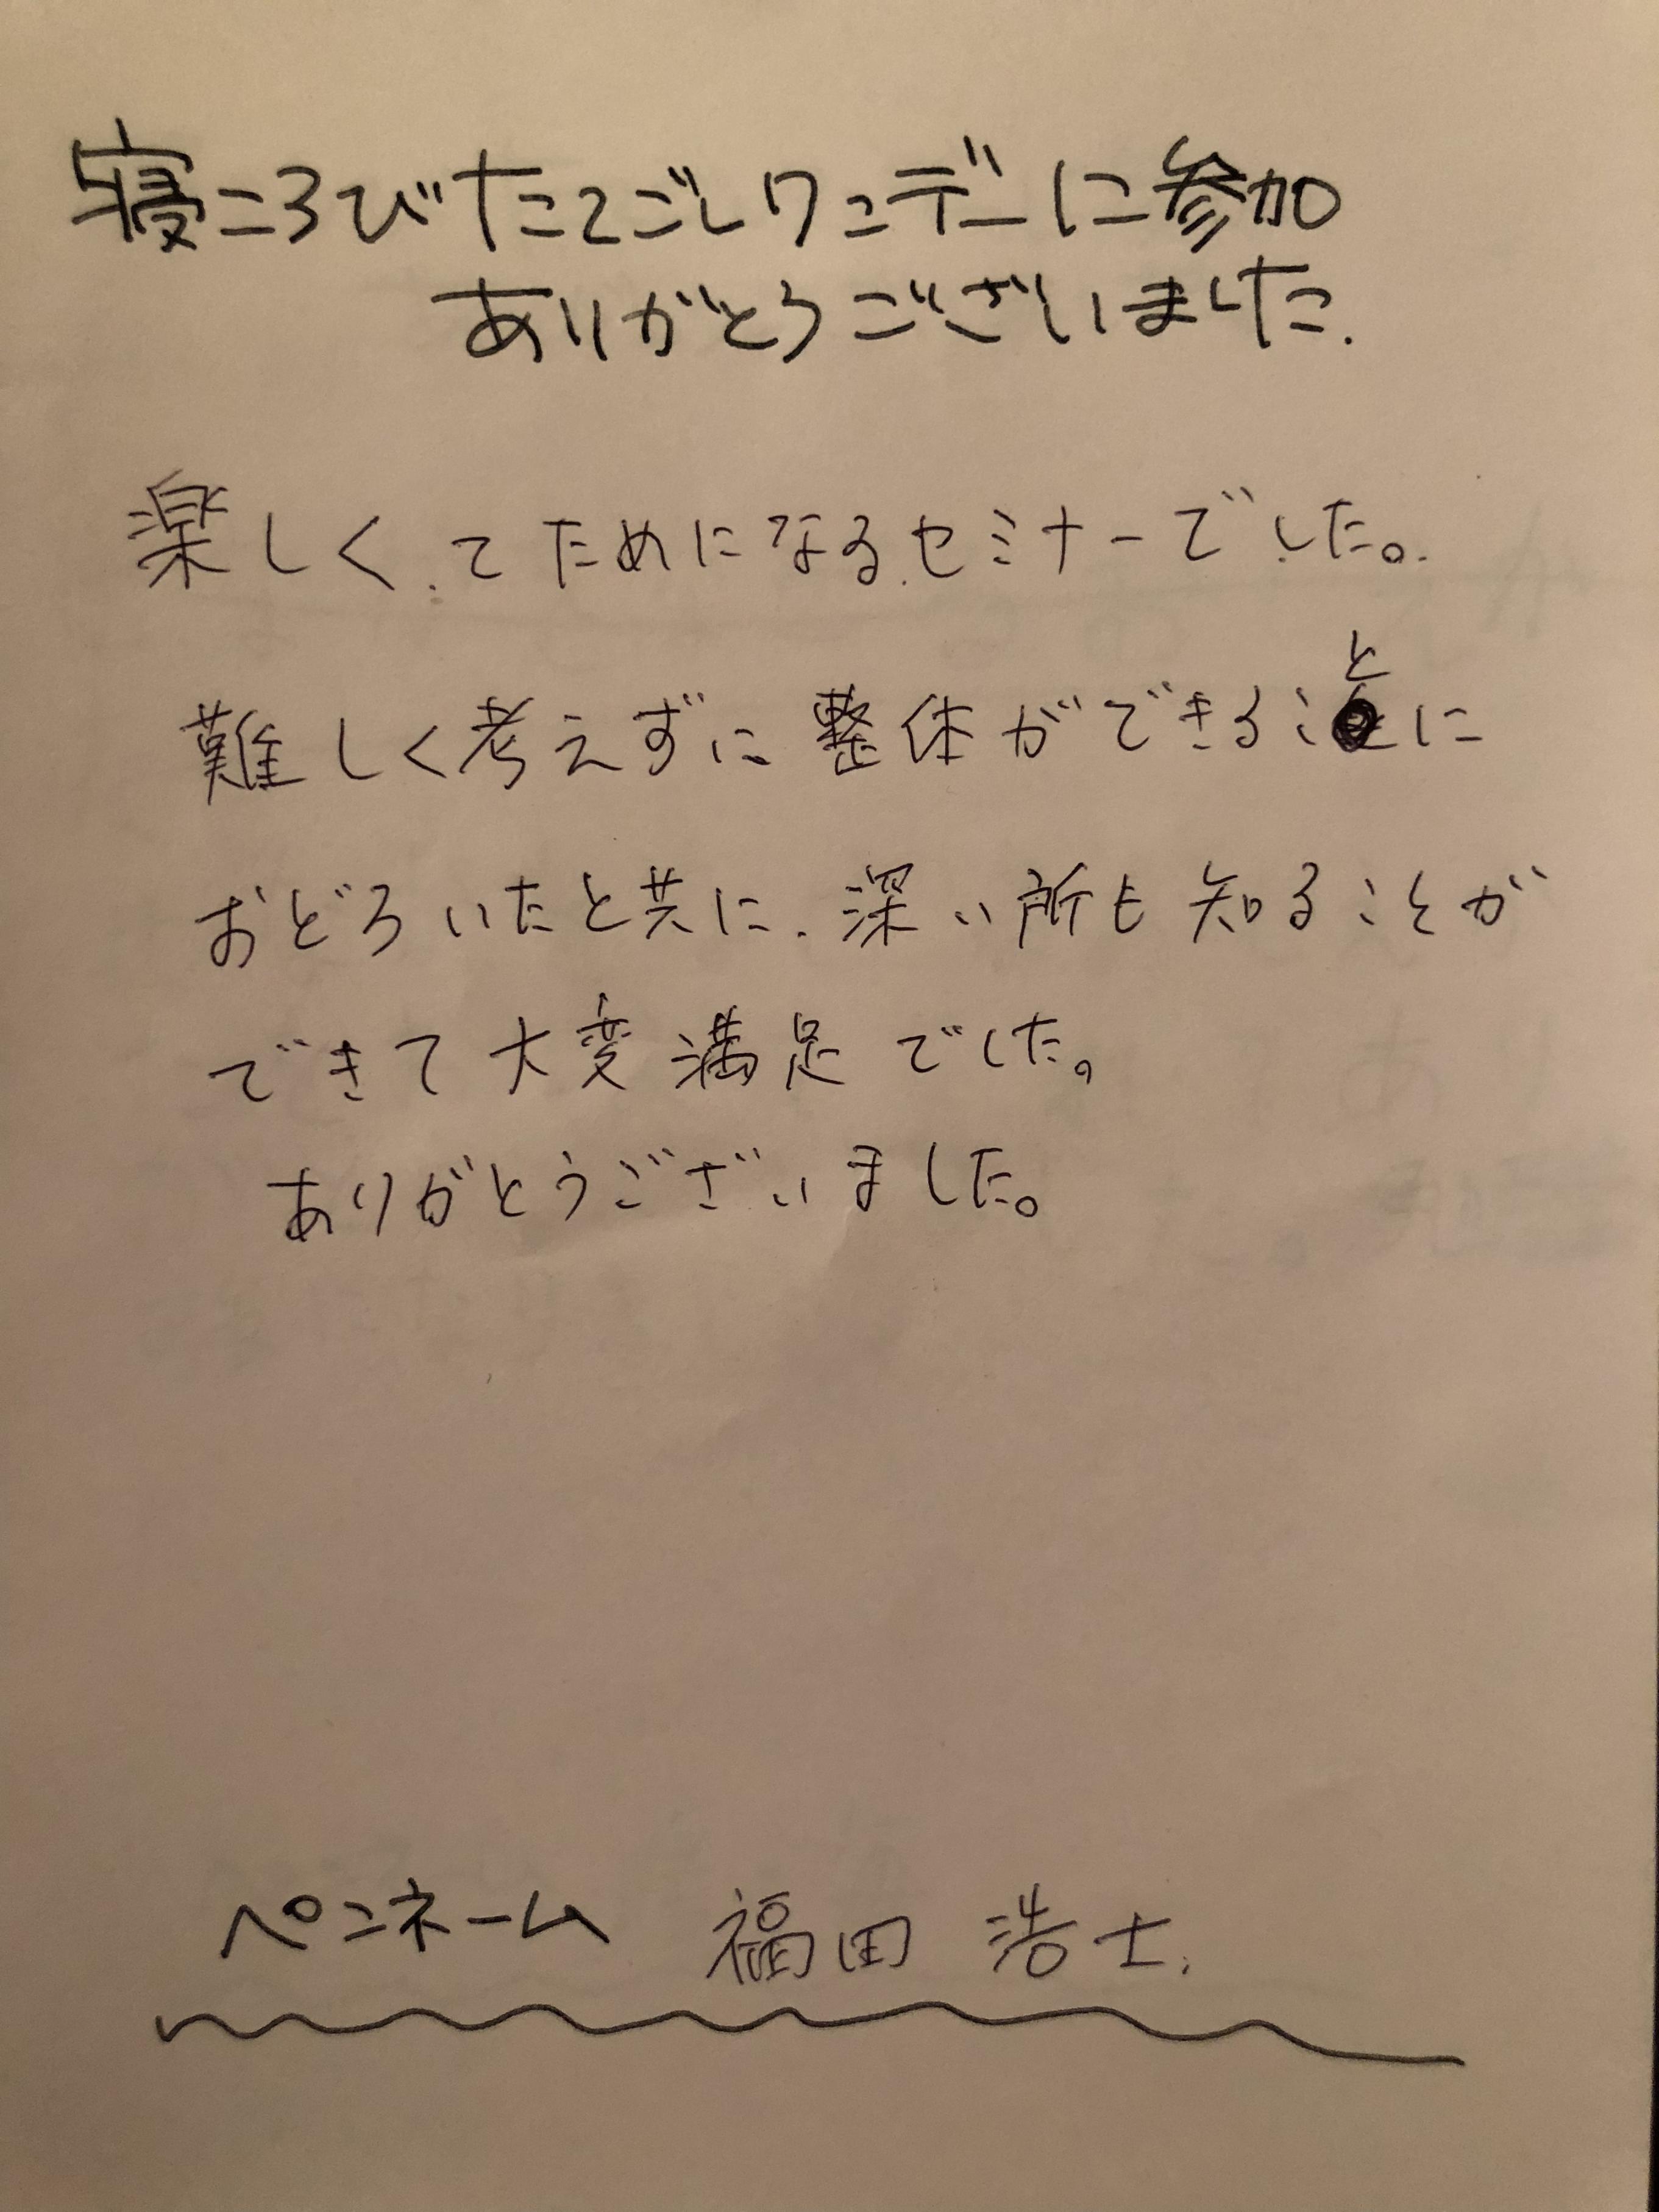 寝ころびたてごしワンデーに参加
ありがとうございました.
楽しく、てためになるセミナーでした。
難しく考えずに整体ができることに
おどろいたと共に、深い所も知ることが
できて大変満足でした。
ありがとうございました。
ペンネーム 福田 浩士.